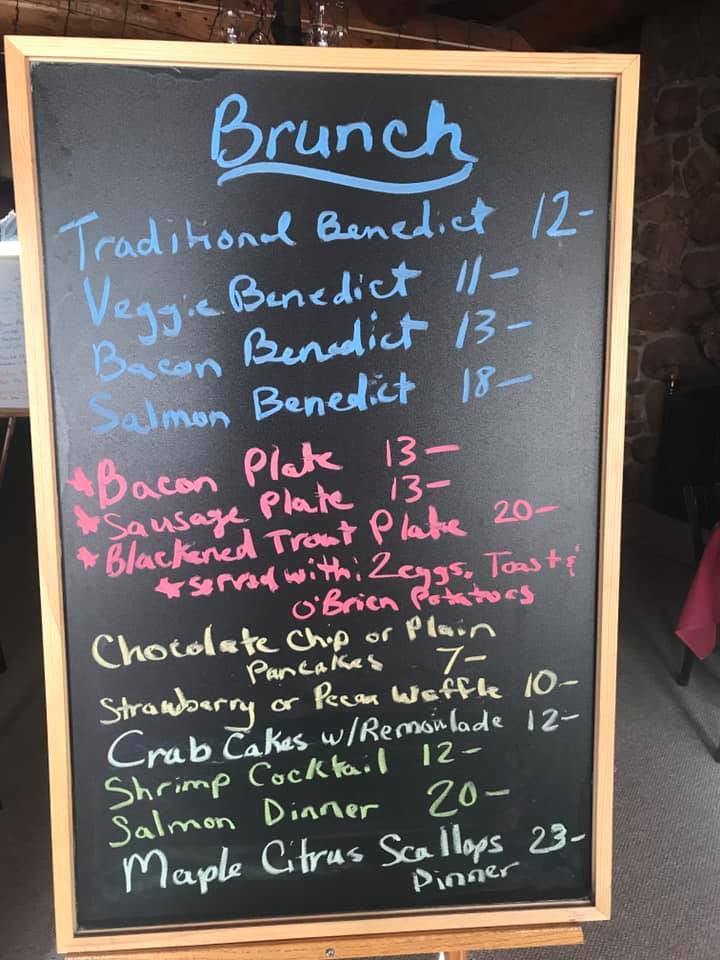 Brunch
Traditional Benedict 12-
Veggie Benedict 11-
Bacon Benedict 13-
Salmon Benedict 18-
*Bacon Plate 13-
*Sausage Plate 13-
*Blackened Trout Plate 20-
*served with: 2eggs, Toast &
O'Brien Potatoes
Chocolate Chip or Plain
Pancakes 7-
Strawberry or Pecan Waffle 10-
Crab Cakes w/Remoulade 12-
Shrimp Cocktail 12-
Salmon Dinner 20-
Maple Citrus Scallops 23-
Dinner